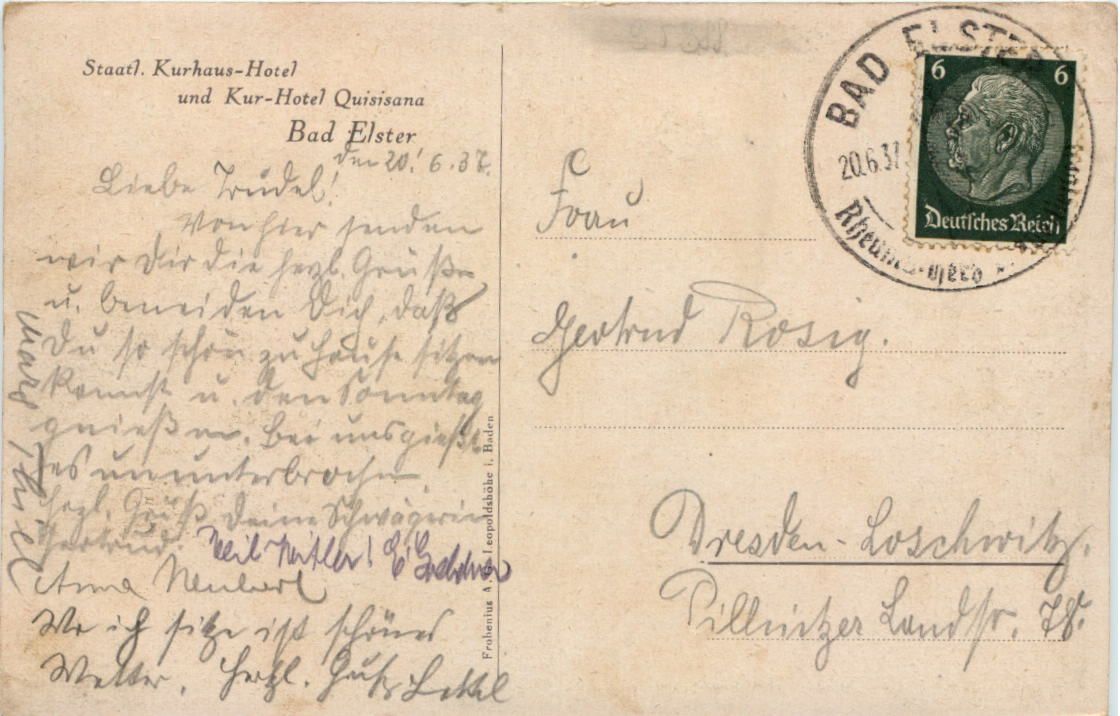 Staatl. Kurhaus-Hotel
und Kur-Hotel Quisisana
Bad Elster
den 20. 6. 37.
Liebe Trudel!
Von hier senden
wir Dir die herzl. Grüße
u. beneiden Dich, daß
Du so schön zu Hause sitzen
kannst u. den Sonntag
genießen. Bei uns gießt
es ununterbrochen.
Herzl. Gruß Deine Schwägerin
Gertrud.
Heil Hitler!
Anna Neubert
Wo ich sitze ist schönes
Wetter. Herzl. Gruß
Frohenius A. G. Leopoldshöhe i. Baden
BAD ELSTER
20.6.37
Rheuma
6 6
Deutsches Reich
Frau
Gertrud Rosig.
Dresden-Loschwitz.
Pillnitzer Landstr. 78.